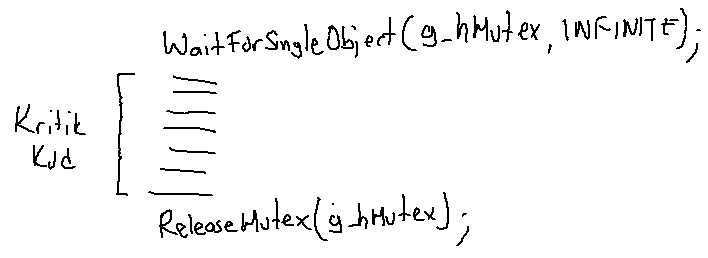 WaitForSingleObject(g_hMutex, INFINITE);
Kritik
Kod
ReleaseMutex(g_hMutex);